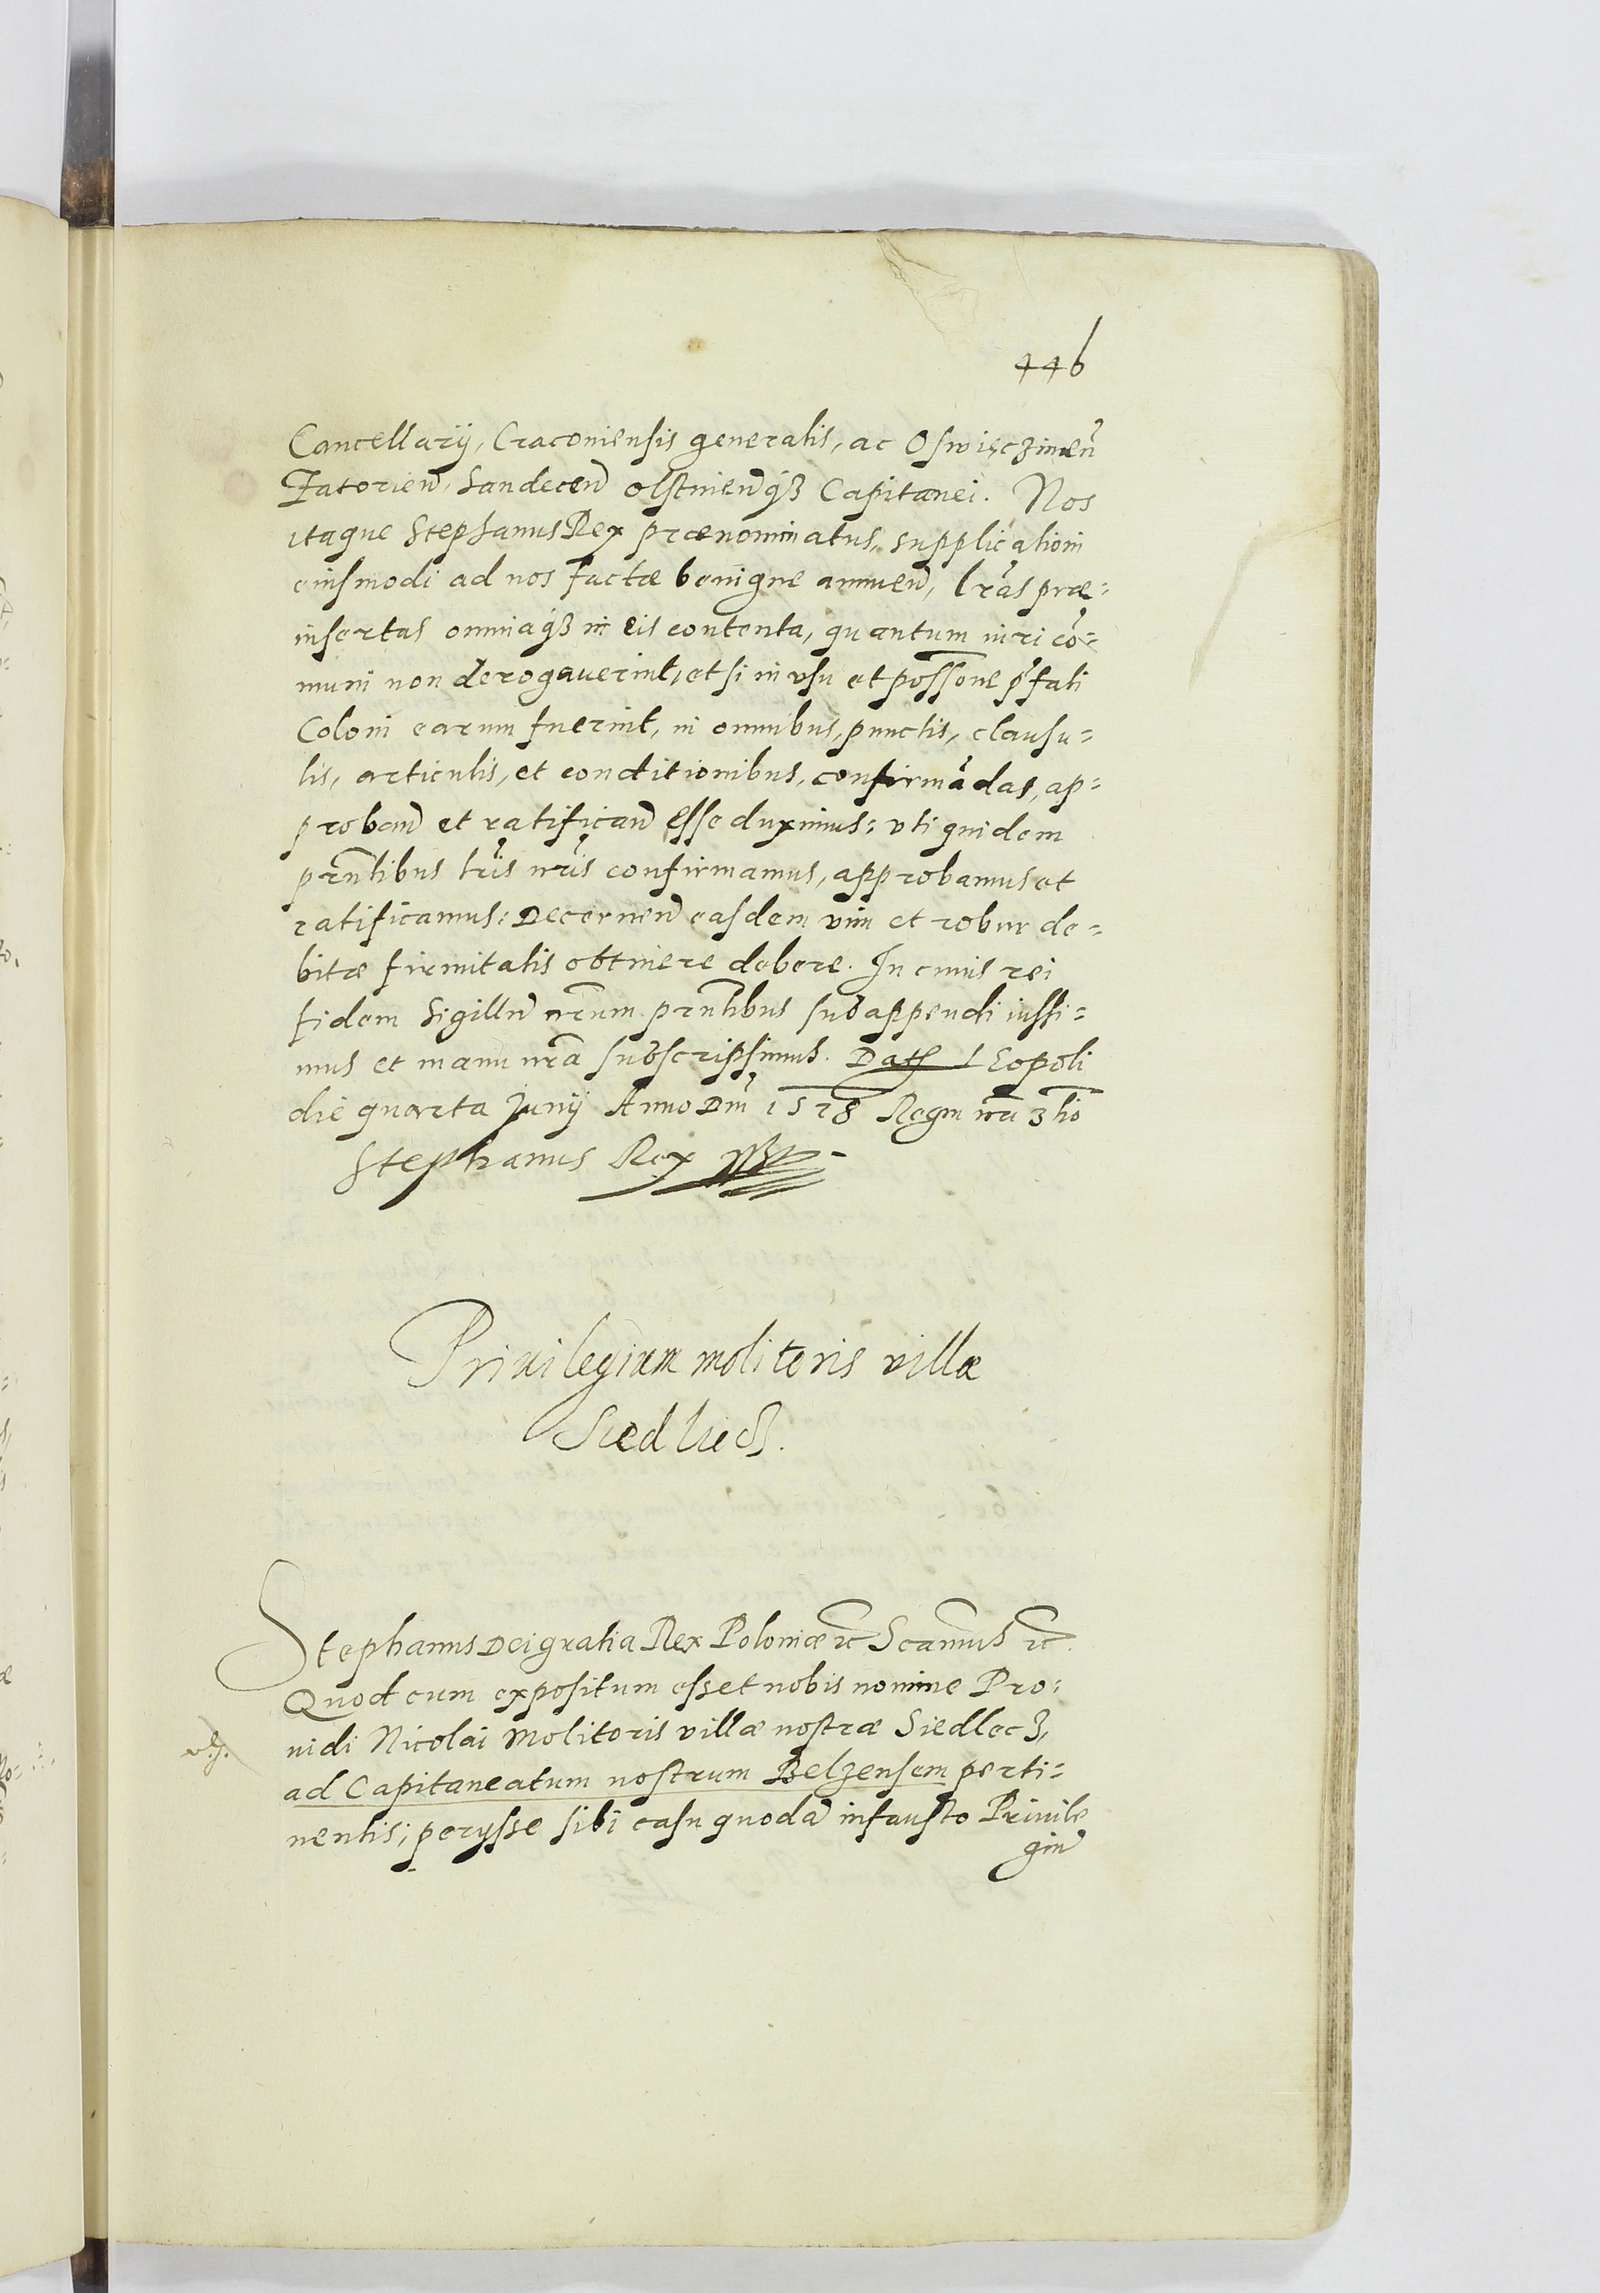 446
Cancellarij, Cracouiensis generalis, ac Oswięczimeñ
Zatorieñ, Sandeceñ olstinenq3 Capitanei. Nos
itaque Stephanus Rex prænominatus, supplicationi
eiusmodi ad nos factæ benigne annueñ, lr̃as præ=
insertas omniaq3 in eis contenta, quantum iuri cõ=
muni non derogauerint, et si in vsu et poss̃one p̃fati
Coloni earum fuerint, in omnibus, punctis, clausu=
lis, articulis, et conditionibus, confirmãdas, ap=
probañ et ratificañ esse duximus: vti quidem
pr̃ntibus lr̃is nr̃is confirmamus, approbamus et
ratificamus: Decerneñ easdem vim et robur de=
bitæ firmitatis obtinere debere. In cuius rei
fidem Sigillũ nr̃um pr̃ntibus subappendi iussi=
mus et manu nr̃a subscripsimus. Dat Leopoli
die quarta Junij Anno Dñi 1578 Regni nr̃i 3tio
Stephanus Rex
Priuilegium molitoris villæ
Siedliecz.
Stephanus Dei gratia Rex Poloniæ rc Scamus rc.
Quod cum expositum esset nobis nomine Pro=
uidi Nicolai Molitoris villæ nostræ Siedlecz,
ad Capitaneatum nostrum Belzensem perti=
nentis; perysse sibi casu quodã infausto Priuile
giũ